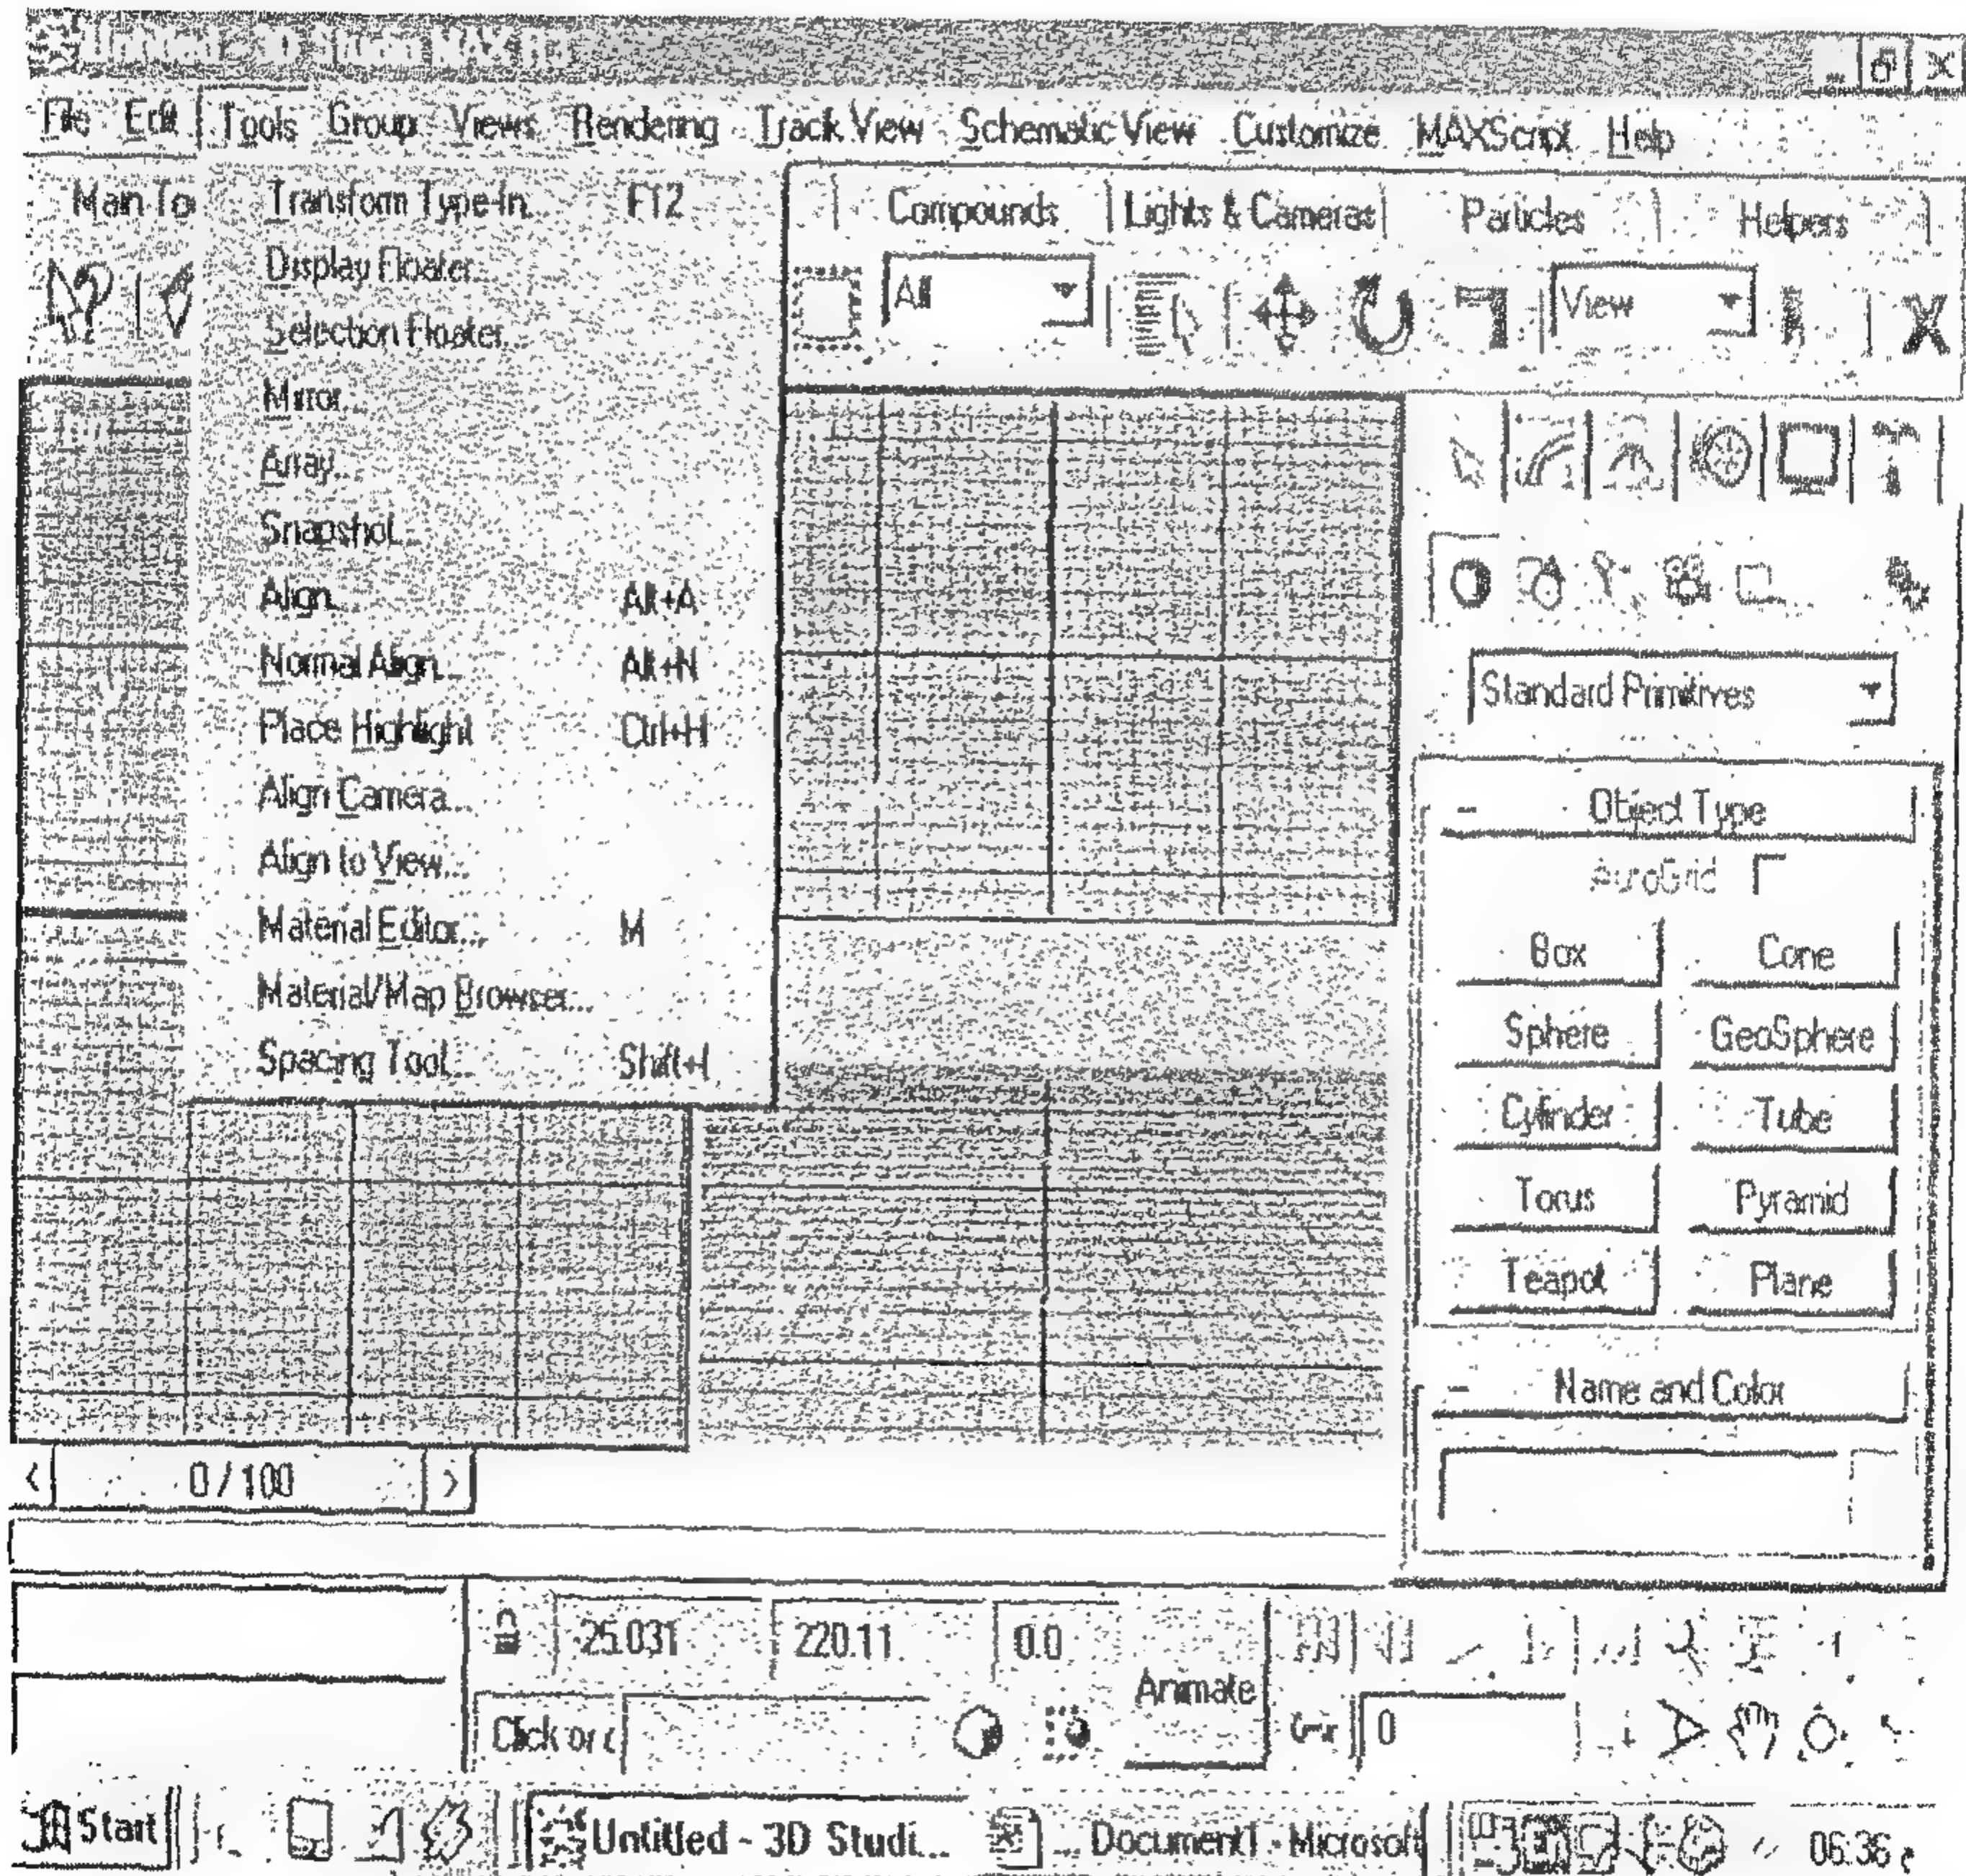 File Edit Tools Group Views Rendering Track View Schematic View Customize MAXScript Help
Main To
Compounds Lights & Cameras Particles Helpers
All View
Transform Type-In... F12
Display Floater...
Selection Floater...
Mirror...
Array...
Snapshot...
Align... Alt+A
Normal Align... Alt+N
Place Highlight Ctrl+H
Align Camera...
Align to View...
Material Editor... M
Material/Map Browser...
Spacing Tool... Shift+I
Standard Primitives
- Object Type
AutoGrid
Box Cone
Sphere GeoSphere
Cylinder Tube
Torus Pyramid
Teapot Plane
- Name and Color
< 0 / 100 >
25.031 220.11 0.0
Animate
Click or c 0
Start Untitled - 3D Studi... Document1 - Microsoft 06:36